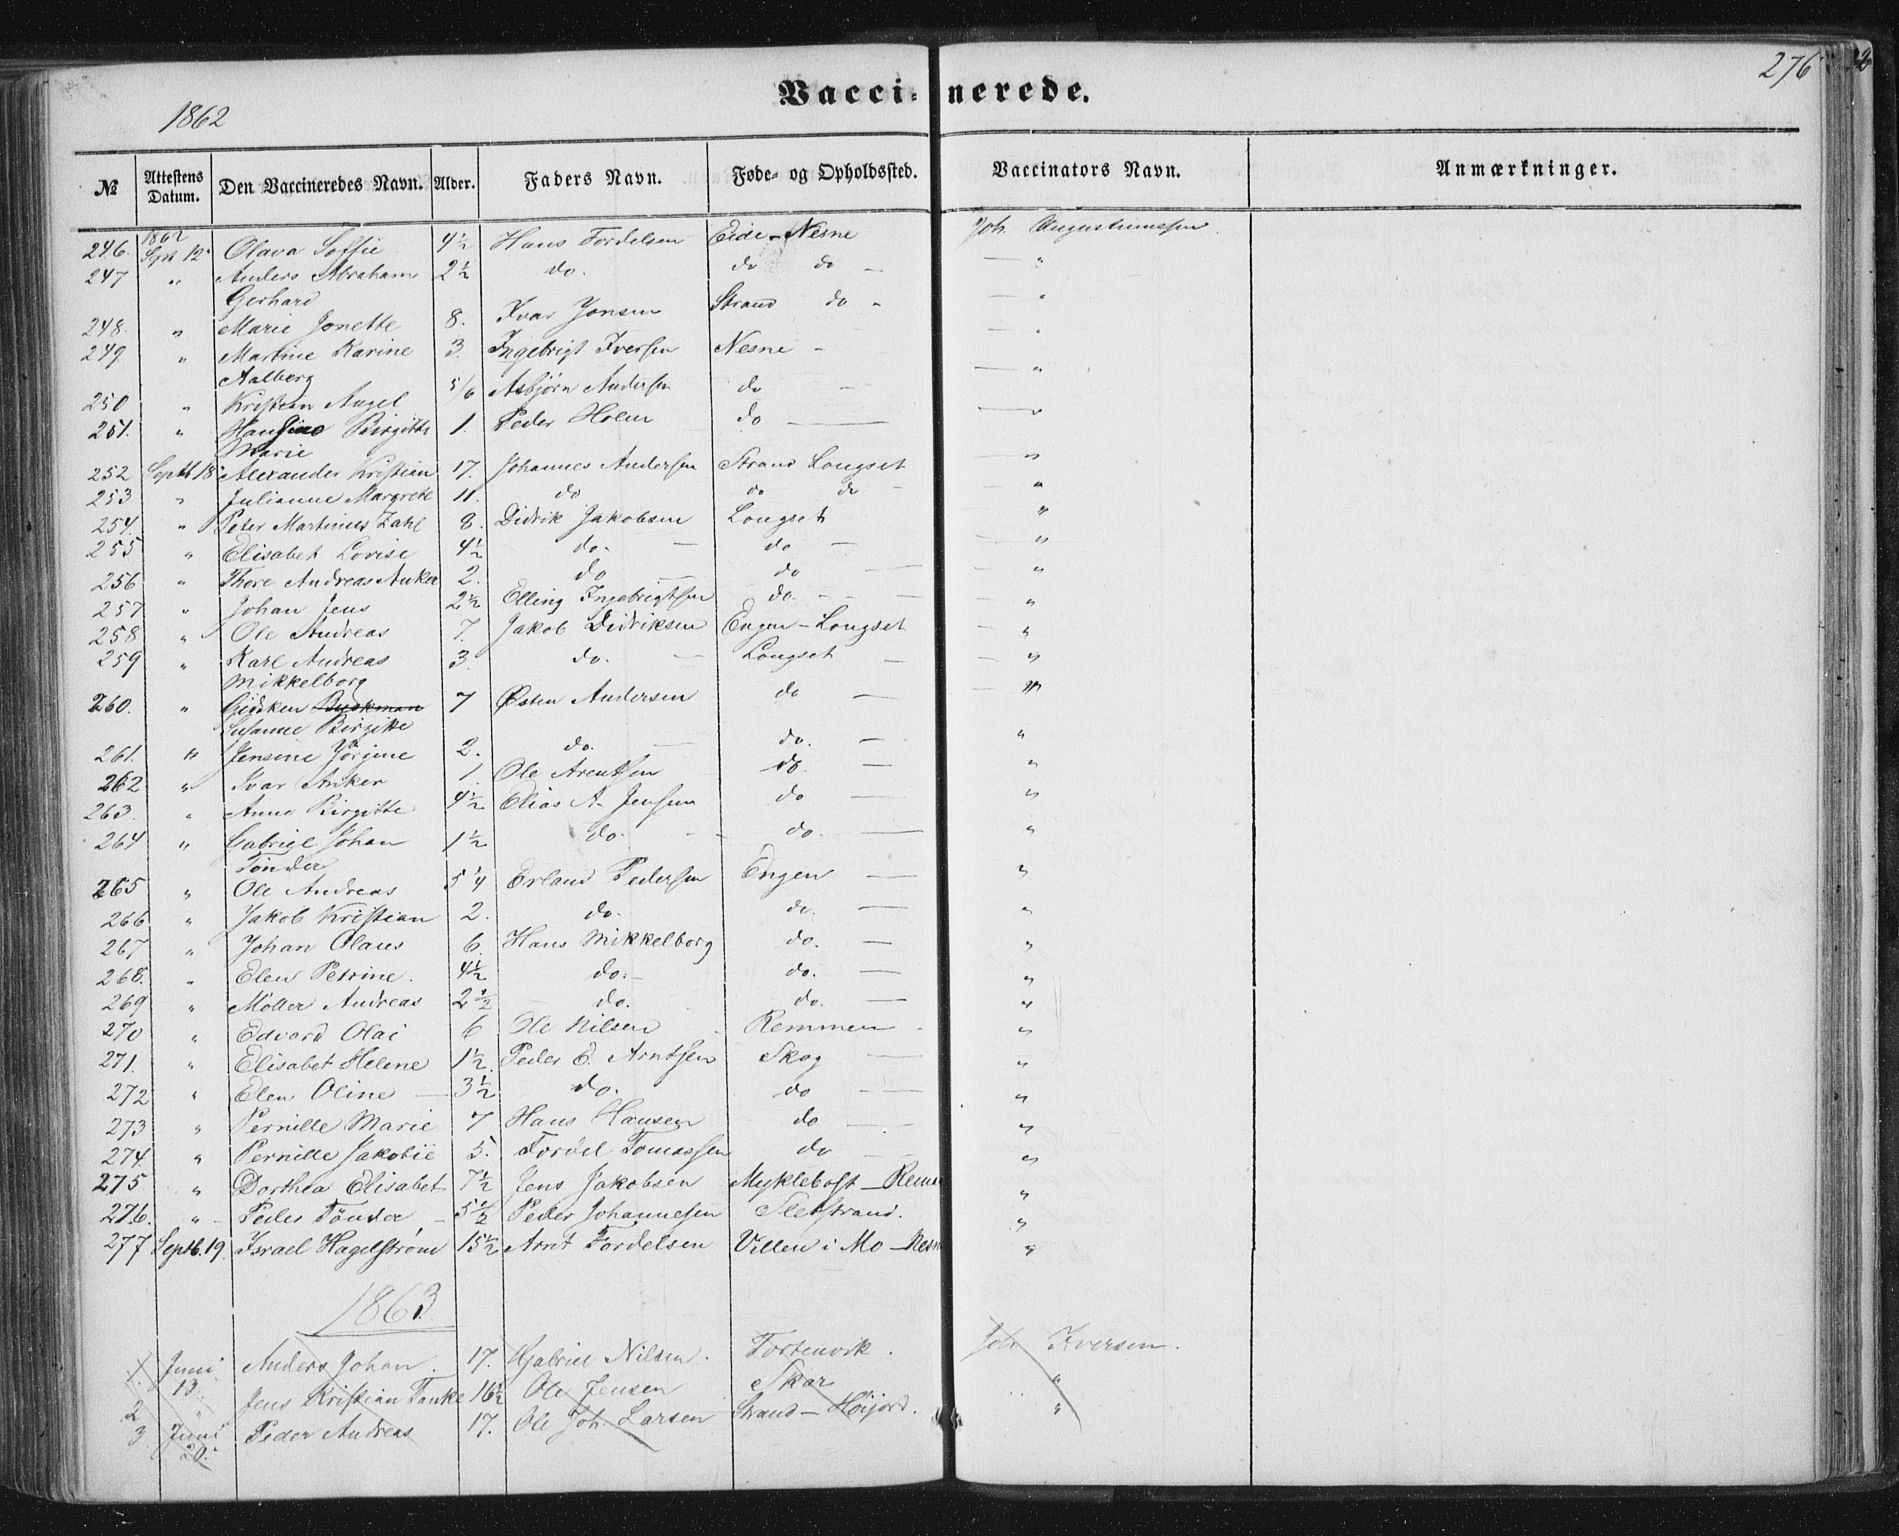 276
Vaccinerede.
1862
№ Attestens Datum. Den Vaccineredes Navn. Alder. Faders Navn. Føde- og Opholdssted. Vaccinators Navn. Anmærkninger.
1862
246. Spt 12 Olava Soffie 4½ Hans Tordelsen Eide - Nesne Joh. Augustinussen
247 " Anders Abraham 2½ do. do do — "
Gerhard
248. " Marie Jonette 8. Ivar Jonsen Strand do - "
249 " Martine Karine 3. Ingebrigt Iversen Nesne - "
Aalberg
250 " Kristian Angel 5/6 Asbjørn Andersen do — "
251. " Hansine Birgitte 1. Peder Holm do — "
Marie
252 Septb 18 Alexander Kristian 17. Johannes Andersen Strand Longset "
253 " Julianne Margrete 11. do do do - "
254. " Peter Martinus Zahl 8. Didrik Jakobsen Longset "
255 " Elisabet Lovise 4½ do. — do — "
256 " Thore Andreas Anker 2. do — do — "
257 " Johan Jens 2½ Elling Ingebrigtsen do. - "
258 " Ole Andreas 7. Jakob Didriksen Engen - Longset "
259 " Karl Andreas 3. do. — Longset — "
Mikkelborg
260. " Gidsken 7 Østen Andersen do — "
Susanne Birgitte
261. " Jensine Jørgine 2. do. — do. — "
262 " Ivar Anker 1. Ole Arentsen do. — "
263. " Anne Birgitte 4½ Elias A. Jensen do — "
264 " Gabriel Johan 1½ do. - do. — "
Tønder
265 " Ole Andreas 5¼ Erland Pedersen Engen — "
266. " Jakob Kristian 2. do. do. — "
267 " Johan Olaus 6. Hans Mikkelborg do. — "
268. " Elen Petrine. 4½ do. - do. — "
269 " Møller Andreas 2½ do. do. — "
270 " Edvard Olai 6 Ole Nilsen Remmen - "
271. " Elisabet Helene 1½ Peder E. Arntsen Skog — "
272 " Elen Oline — 3½ do. do — "
273 " Pernille Marie 7 Hans Hansen do — "
274. " Pernille Jakobie 5. Tordel Tomassen do — "
275 " Dorthea Elisabet 7½ Jens Jakobsen Myklebost - "
276. " Peder Tønder — 5½ Peder Johannesen Sletstrand. "
277 Septb. 19 Israel Hagelstrøm 15½ Arnt Tordelsen Villen i Mo - "
1863
1. Juni 13 Anders Johan. 17. Gabriel Nilsen. Tortenvik. Joh Iversen.
2 " Jens Kristian Tanke 16½ Ole Jensen Skar "
3 Juni 20. Peder Andreas 17. Ole Joh. Larsen Strand - Høijord. "